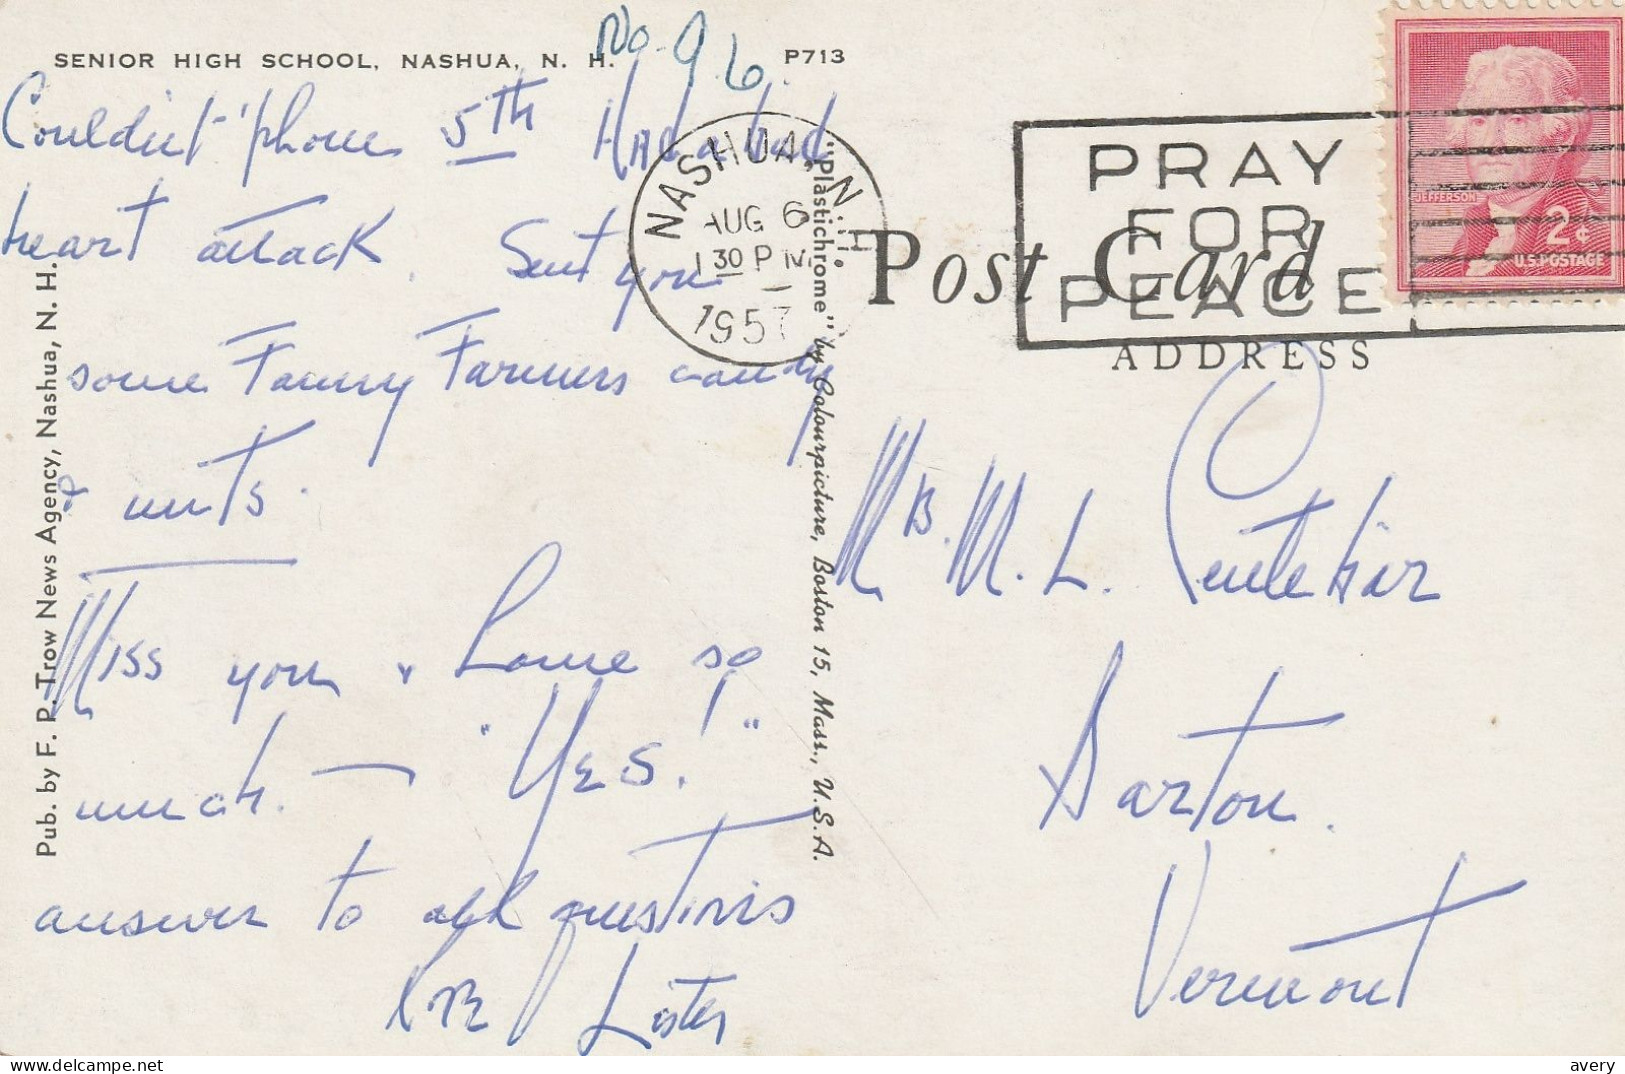 SENIOR HIGH SCHOOL, NASHUA, N. H.
No. 96.
P713
Couldn't 'phone 5th Had a bad
heart attack. Sent you
some Fanny Farmers candy
& nuts.
Miss you & home so
much. — "Yes!"
answer to all questions
Lister
NASHUA, N. H.
AUG 6
1 30 PM
1957
PRAY
FOR
PEACE
JEFFERSON
2¢
U.S. POSTAGE
Post Card
ADDRESS
M. L.
Barton.
Vermont
Pub. by F. P. Trow News Agency, Nashua, N. H.
"Plastichrome" by Colourpicture, Boston 15, Mass., U.S.A.
avery